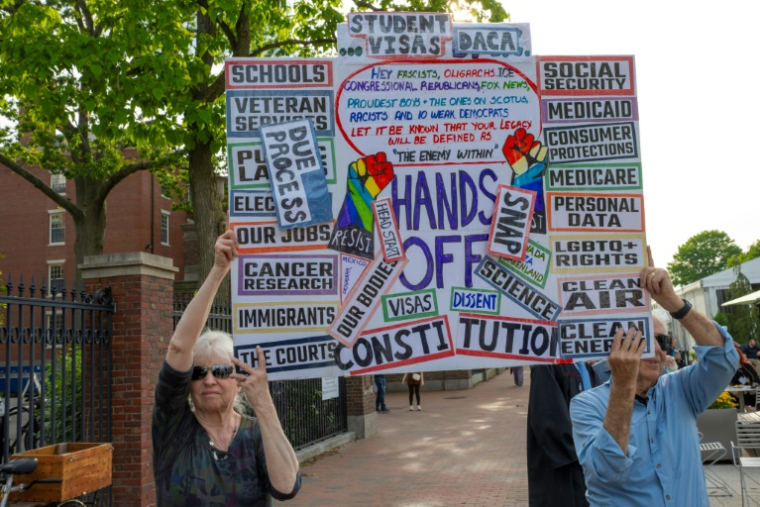 STUDENT
...VISAS
DACA,
HEY FASCISTS, OLIGARCHS, ICE
CONGRESSIONAL REPUBLICANS, FOX NEWS,
PROUDEST BOYS + THE ONES ON SCOTUS,
RACISTS AND 10 WEAK DEMOCRATS
LET IT BE KNOWN THAT YOUR LEGACY
WILL BE DEFINED AS
"THE ENEMY WITHIN"
SCHOOLS
VETERAN
SERVICES
DUE
PROCESS
PU
LA
ELEC
OUR JOBS
CANCER
RESEARCH
IMMIGRANTS
THE COURTS
HANDS
OFF
RESIST
HEAD START
OUR BODIES
MEXICO
VISAS
DISSENT
SNAP
GREENLAND
SCIENCE
CONSTITUTION
SOCIAL
SECURITY
MEDICAID
CONSUMER
PROTECTIONS
MEDICARE
PERSONAL
DATA
LGBTQ+
RIGHTS
CLEAN
AIR
CLEAN
ENER